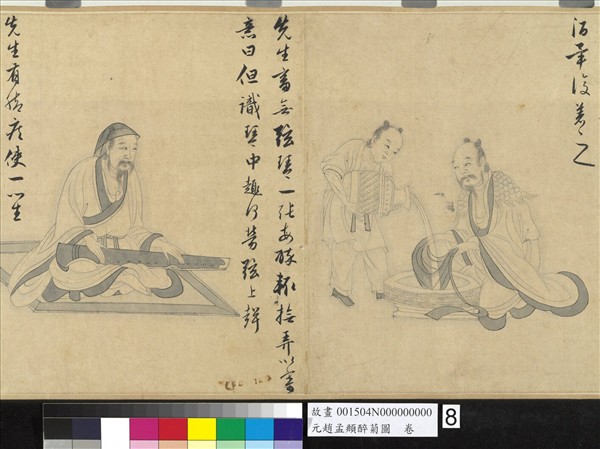 酒畢復著之
先生畜無弦琴一張每醉輒撫弄以寄
意曰但識琴中趣何勞弦上聲
先生有脚疾使一門生
故畫 001504N000000000
元趙孟頫醉菊圖 卷
8